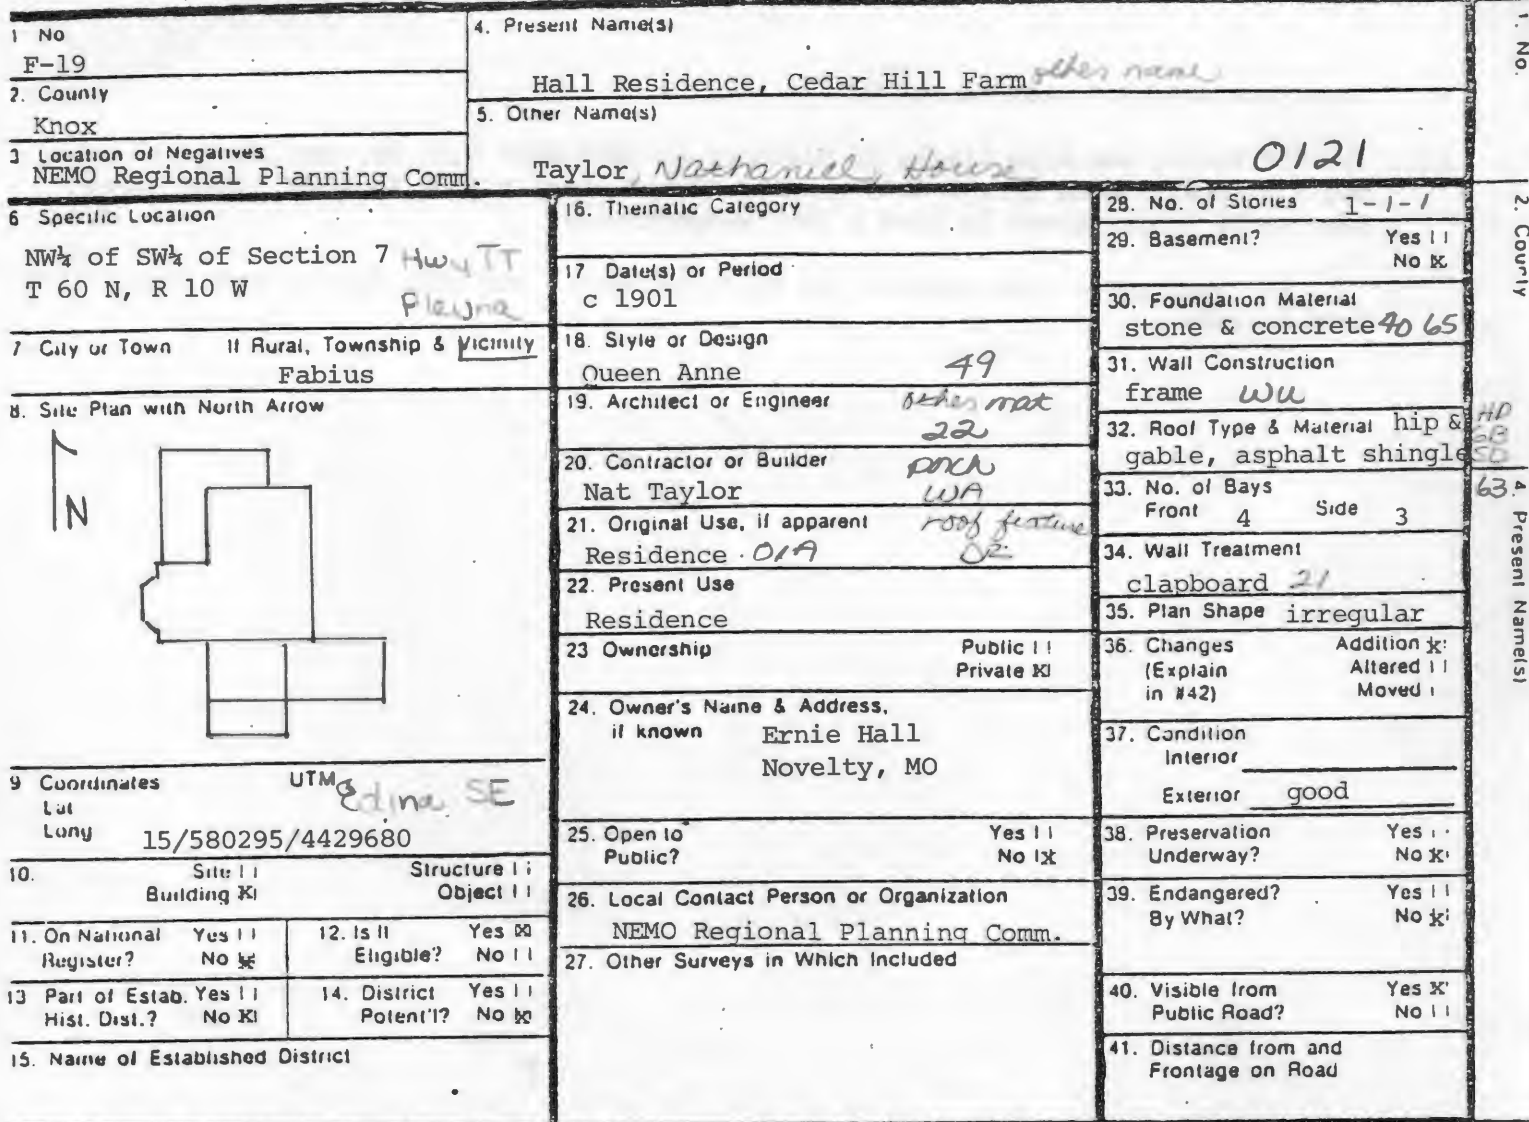 1 No
F-19
2. County
Knox
3 Location of Negatives
NEMO Regional Planning Comm.
4. Present Name(s)
Hall Residence, Cedar Hill Farm other name
5. Other Name(s)
Taylor, Nathaniel, House
0121
6 Specific Location
NW¼ of SW¼ of Section 7 Hwy TT
T 60 N, R 10 W
Plevna
7 City or Town If Rural, Township & Vicinity
Fabius
8. Site Plan with North Arrow
N
9 Coordinates UTM
Lat
Long
Edina SE
15/580295/4429680
10. Site | | Structure | |
Building X Object | |
11. On National Register? Yes | | No X
12. Is It Eligible? Yes X No | |
13 Part of Estab. Hist. Dist.? Yes | | No X
14. District Potent'l? Yes | | No X
15. Name of Established District
16. Thematic Category
17 Date(s) or Period
c 1901
18. Style or Design
Queen Anne 49
19. Architect or Engineer other mat
22
20. Contractor or Builder porch
Nat Taylor WA
21. Original Use, if apparent roof feature
Residence 01A DR
22. Present Use
Residence
23 Ownership Public | |
Private X
24. Owner's Name & Address,
if known Ernie Hall
Novelty, MO
25. Open to Yes | |
Public? No X
26. Local Contact Person or Organization
NEMO Regional Planning Comm.
27. Other Surveys in Which Included
28. No. of Stories 1-1-1
29. Basement? Yes | |
No X
30. Foundation Material
stone & concrete 40 65
31. Wall Construction
frame WU
32. Roof Type & Material hip & HP
gable, asphalt shingle GB
63
33. No. of Bays
Front 4 Side 3
34. Wall Treatment
clapboard 21
35. Plan Shape irregular
36. Changes Addition X
(Explain Altered | |
in #42) Moved |
37. Condition
Interior
Exterior good
38. Preservation Yes
Underway? No X
39. Endangered? Yes | |
By What? No X
40. Visible from Yes X
Public Road? No | |
41. Distance from and
Frontage on Road
1. No.
2. County
4. Present Name(s)